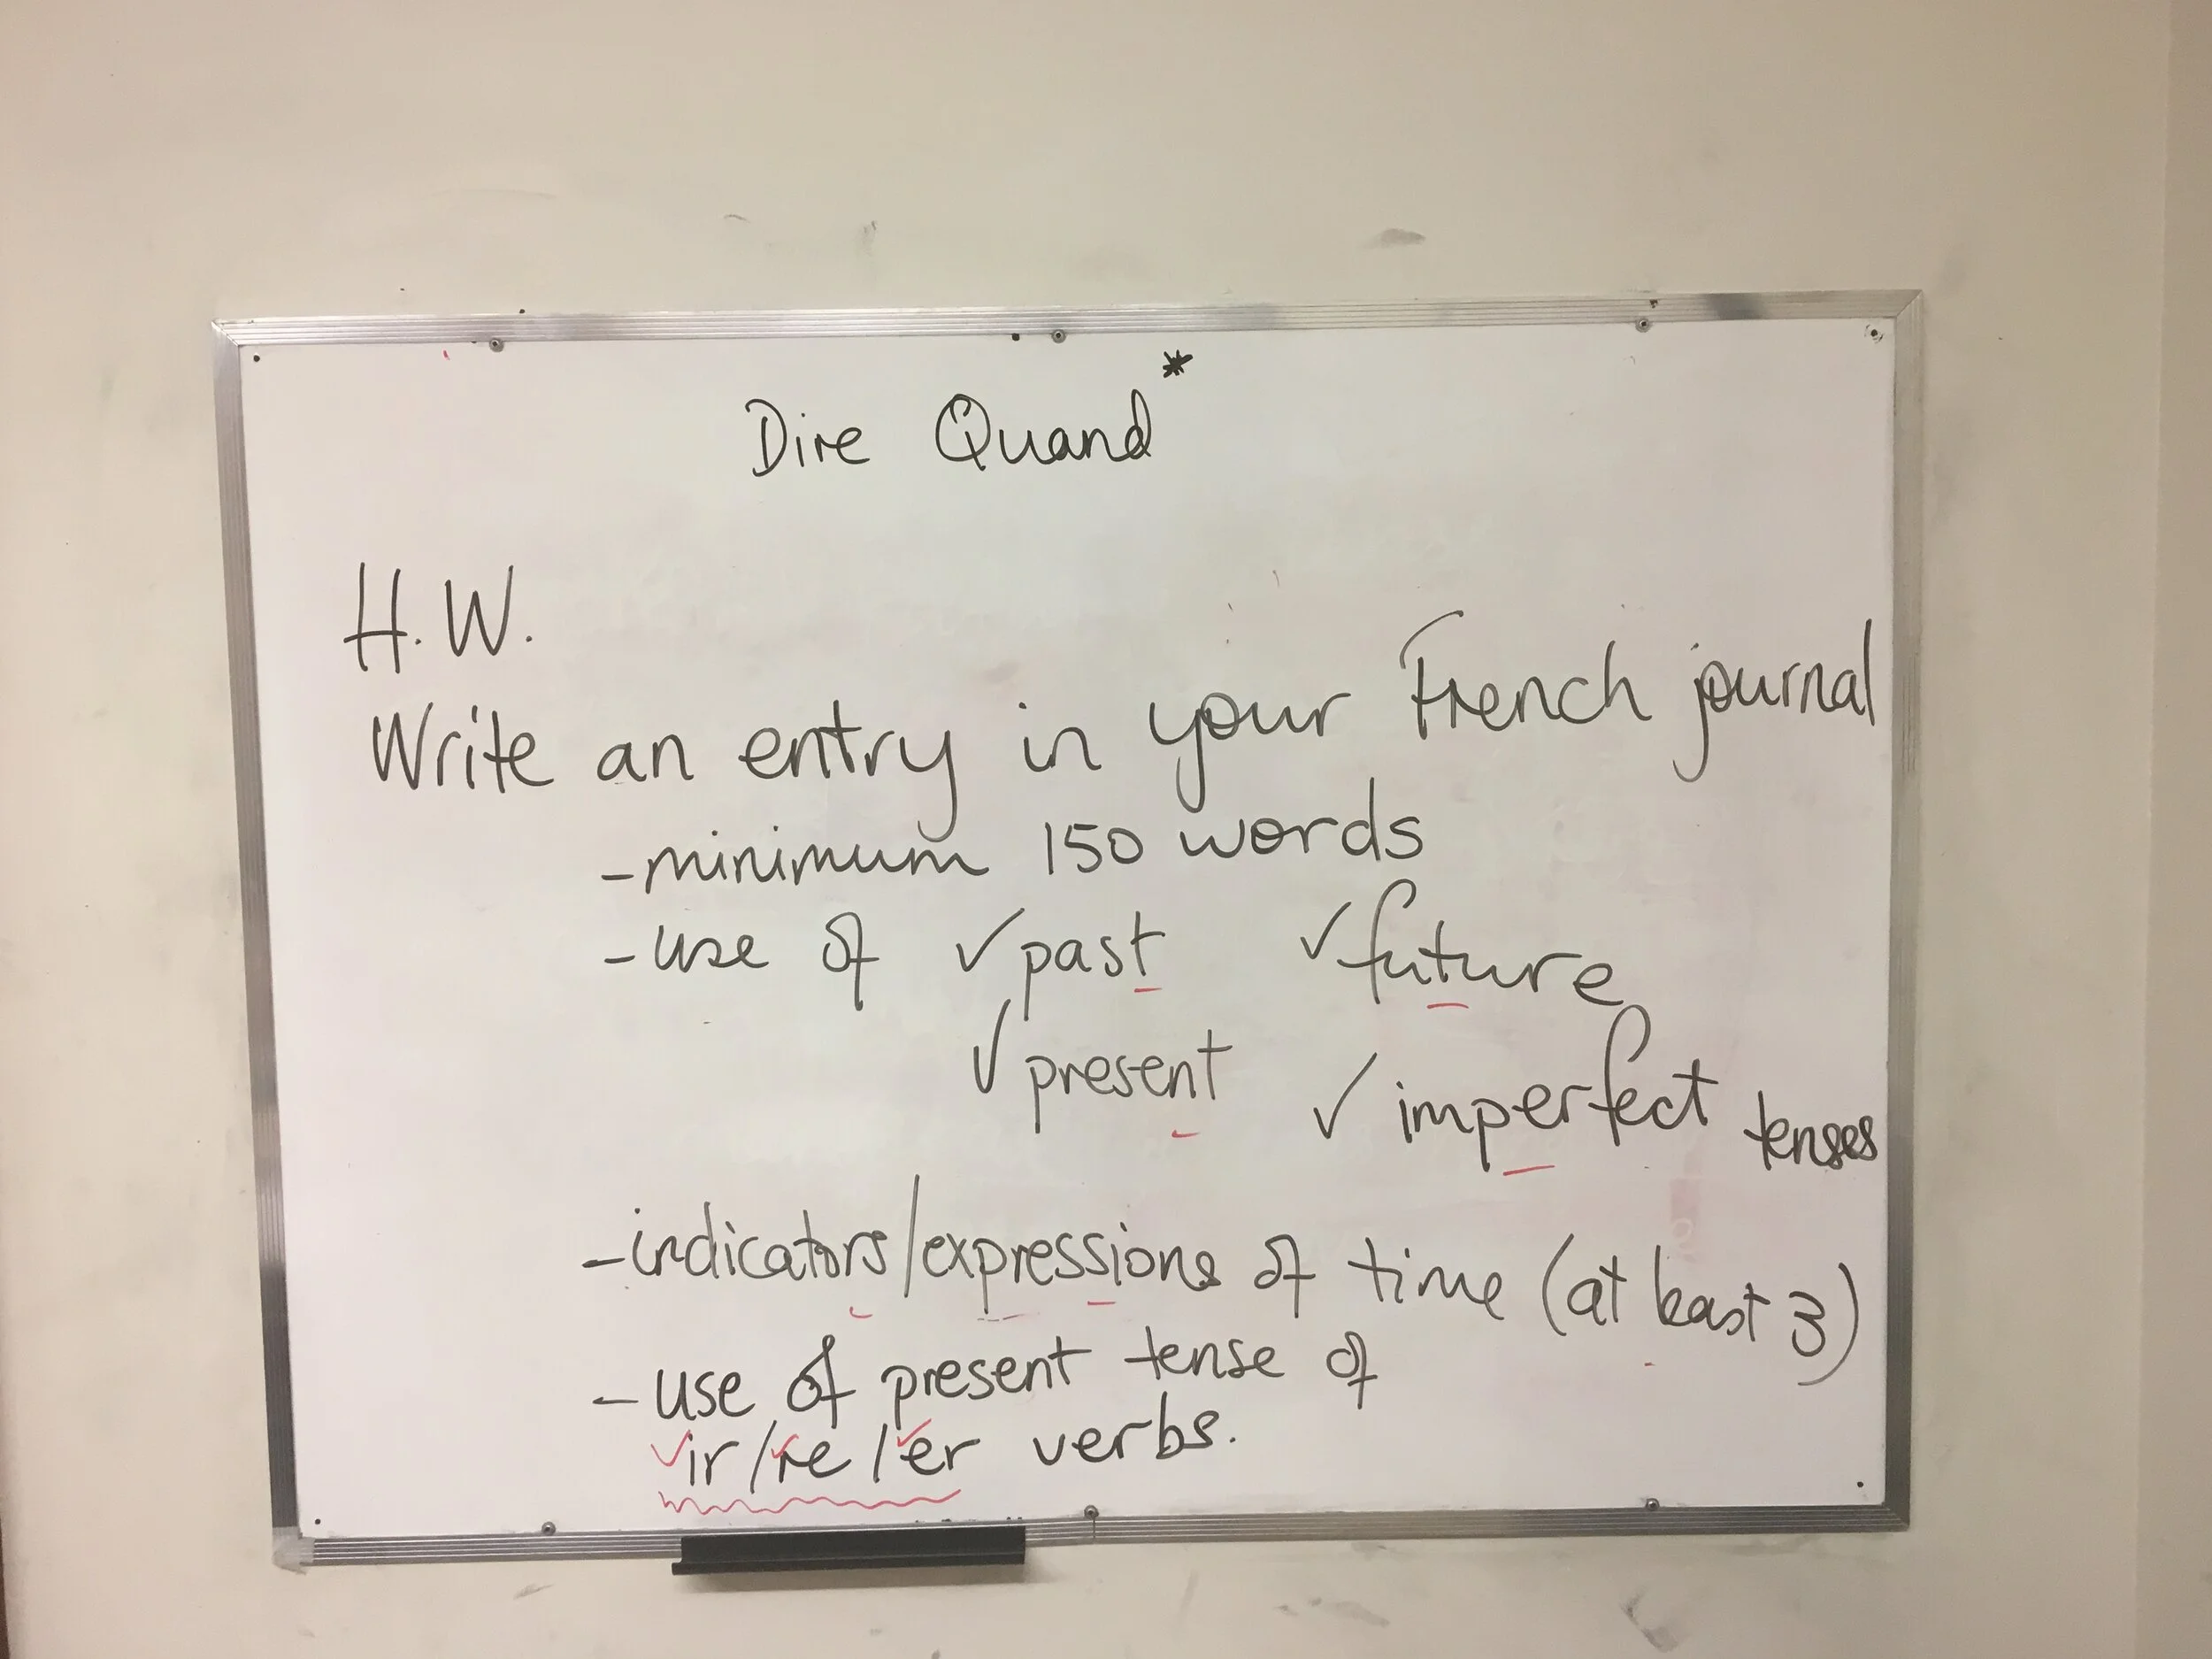 Dire Quand*
H.W.
Write an entry in your French journal
- minimum 150 words
- use of ✓past ✓future
✓present ✓imperfect tenses
- indicators/expressions of time (at least 3)
- use of present tense of
✓ir/✓re/✓er verbs.